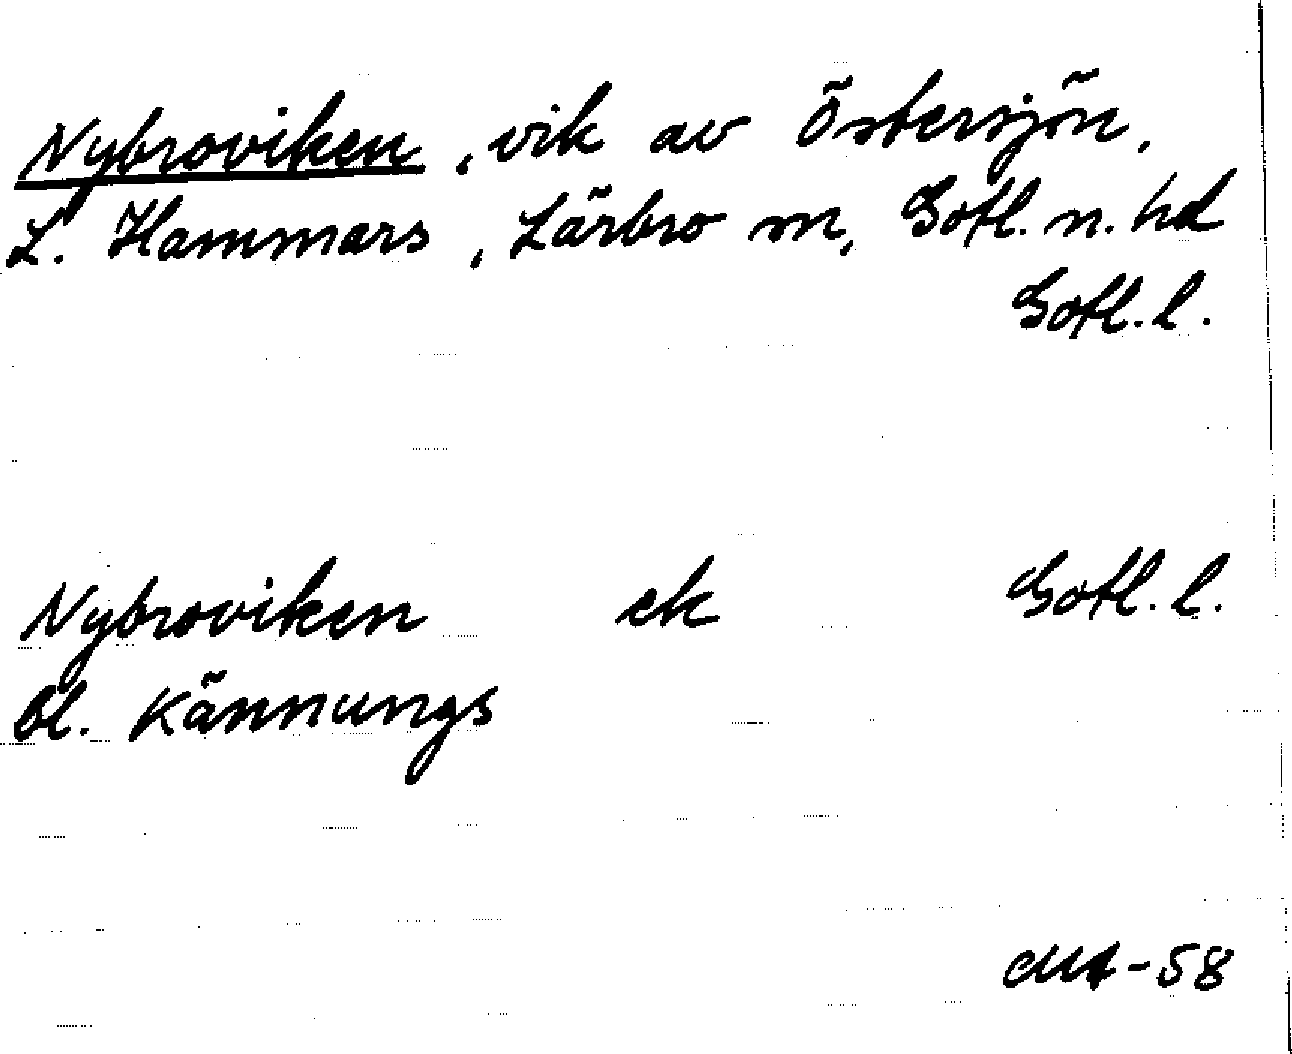 Nybroviken, vik av Östersjön,
L. Hammars, Lärbro sn, Gotl. n. hd
Gotl. l.
Nybroviken ek Gotl. l.
Bl. Kännungs
-58